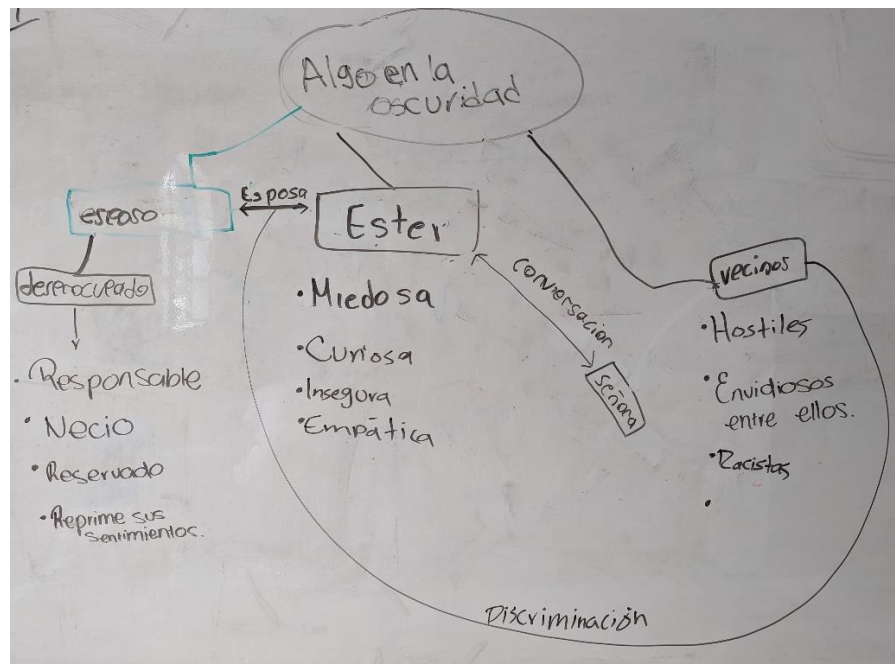 Algo en la
oscuridad
esposo
Esposa
Ester
vecinos
despreocupado
• Responsable
• Necio
• Reservado
• Reprime sus
sentimientos.
• Miedosa
• Curiosa
• Insegura
• Empática
conversación
señora
• Hostiles
• Envidiosos
entre ellos.
• Racistas
•
Discriminación